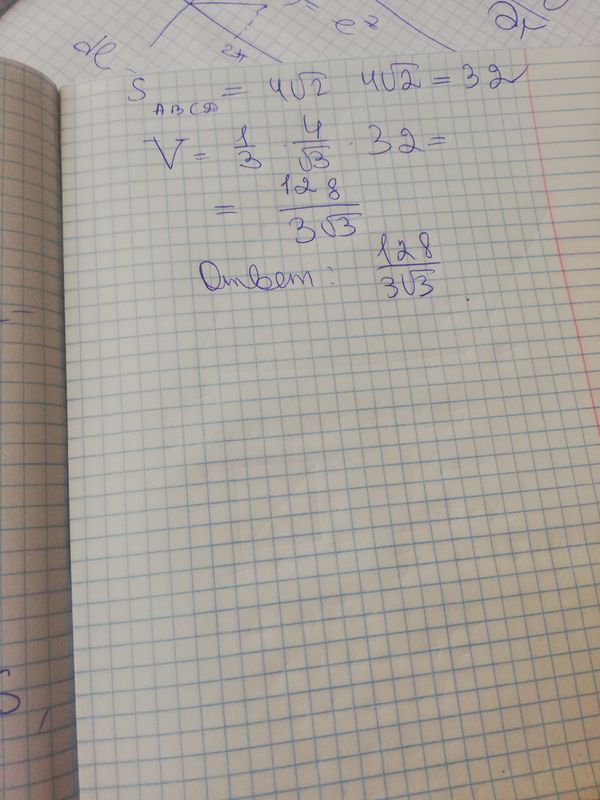 2π
S ABCD = 4√2 · 4√2 = 32
V = 1/3 · 4/√3 · 32 =
= 128/3√3
Ответ: 128/3√3